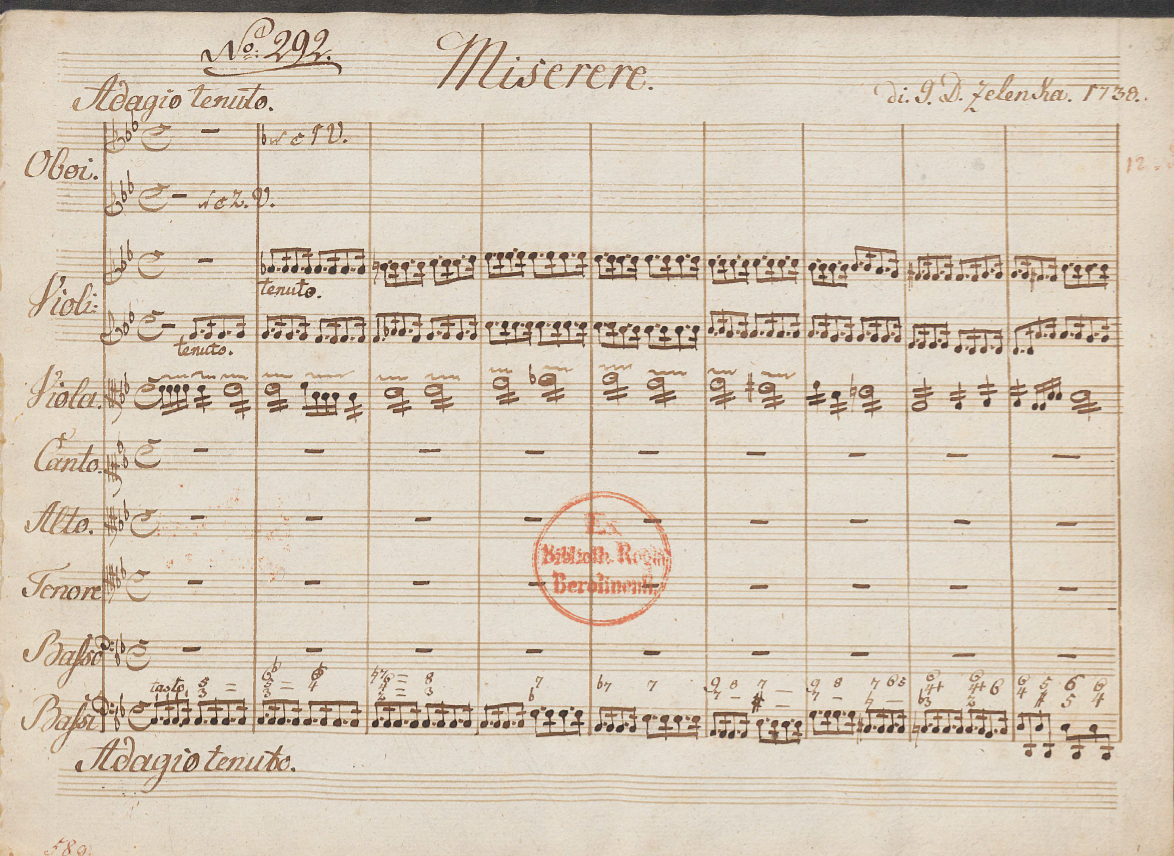 No. 292.
Miserere.
Adagio tenuto.
di. J. D. Zelenka. 1738.
Oboi.
12.
Violi:
tenuto.
tenuto.
Viola.
Canto.
Alto.
Ex
Biblioth. Regia
Berolinensi.
Tenore
Basso
tasto.
Bassi
Adagio tenuto.
589.